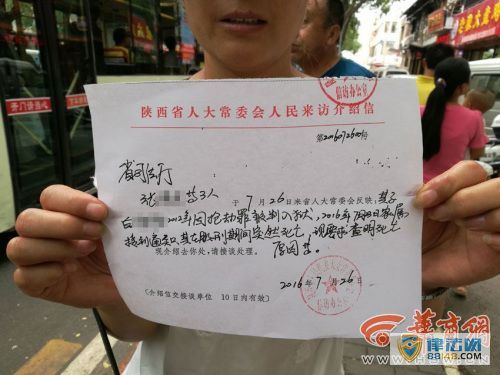 信访办公室
陕西省人大常委会人民来访介绍信
省司法厅
张 等3人 于7月26日来省人大常委会反映:其子
白 2012年因抢劫罪被判入狱,2016年 月 日家属
接到通知,其在服刑期间突然死亡,现要求查明死亡
原因等。
现介绍去你处,请接谈处理。
2016年7月26日
(介绍信交接谈单位 10日内有效)
华商网
律法网
8848.com